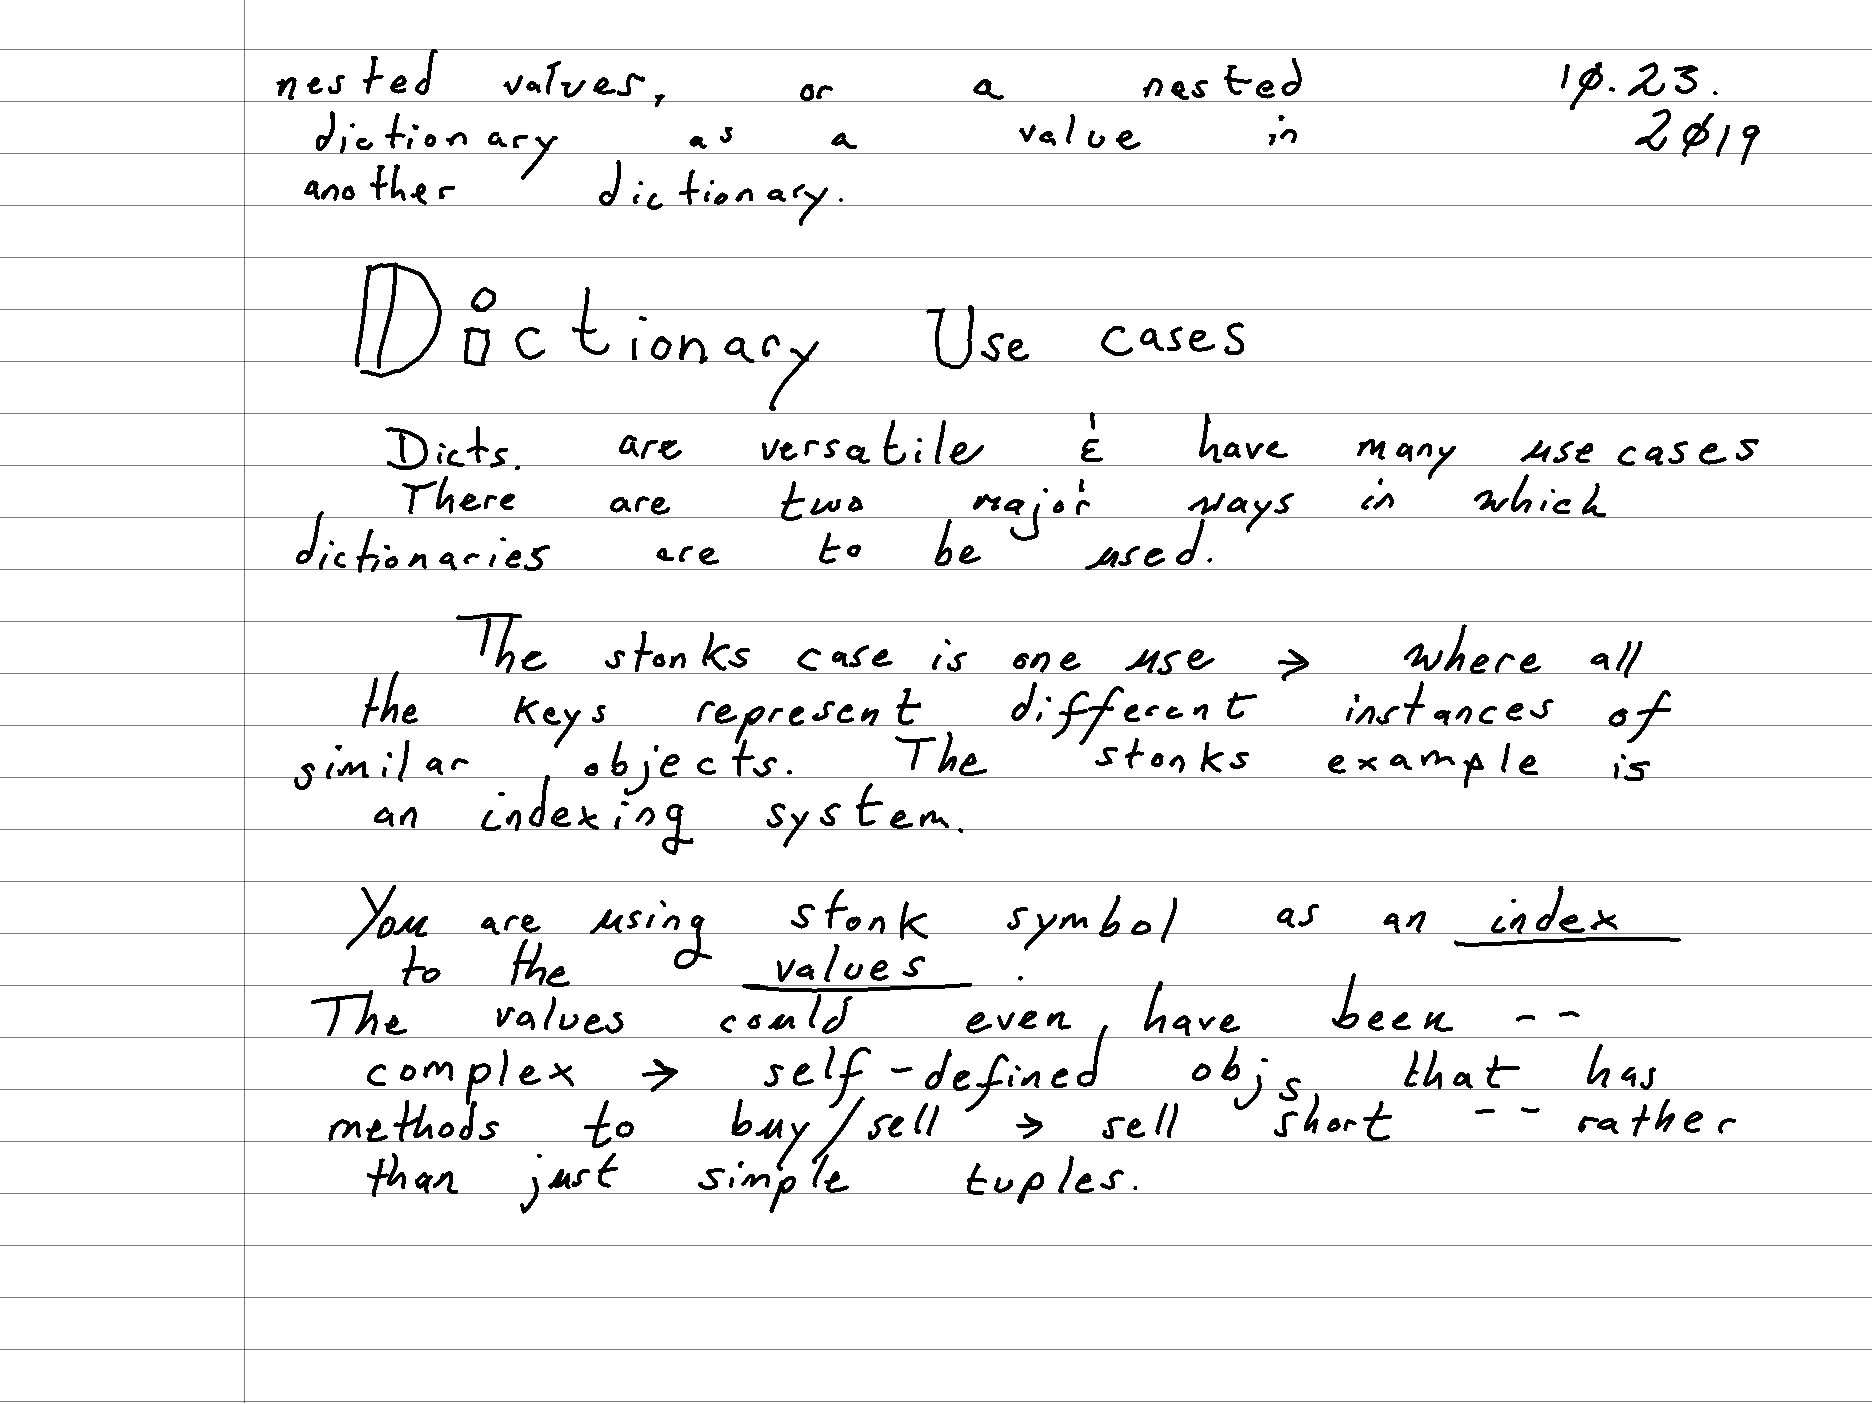 nested values, or a nested 10.23.
dictionary as a value in 2019
another dictionary.
Dictionary Use cases
Dicts. are versatile & have many use cases
There are two major ways in which
dictionaries are to be used.
The stonks case is one use → where all
the keys represent different instances of
similar objects. The stonks example is
an indexing system.
You are using stonk symbol as an index
to the values.
The values could even have been --
complex → self-defined objs that has
methods to buy/sell → sell short -- rather
than just simple tuples.